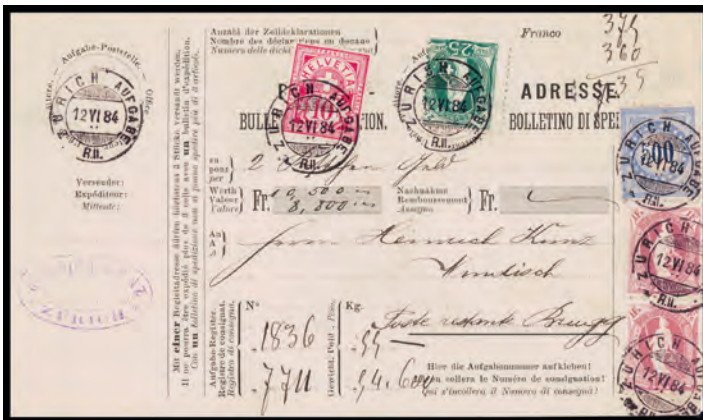 Aufgabe-Poststelle. — Office
ZÜRICH AUFGABE
12 VI 84
R.II.
Versender:
Expéditeur:
Mittente:
ZÜRICH
Mit einer Begleitadresse dürfen höchstens 3 Stücke versandt werden.
Il ne pourra être expédié plus de 3 colis avec un bulletin d'expédition.
Con un bollettino di spedizione non si ponno spedire più di 3 articoli.
Anzahl der Zolldeklarationen
Nombre des déclarations en douane
Numero delle dichi
Franco
375
360
HELVETIA
10
25
ZÜRICH AUFGABE
12 VI 84
R.II.
ZÜRICH AUFGABE
12 VI 84
R.II.
ADRESSE
BULL
ION.
BOLLETTINO DI SPE
500
ZÜRICH AUFGABE
12 VI 84
R.II.
en
pour
per
2
Geld
Werth
Valeur
Valore
Fr. 10,500
8,800
Nachnahme
Remboursement
Assegno
Fr.
ZÜRICH AUFGABE
12 VI 84
R.II.
An
A
A
Herrn Heinrich Kunz
Windisch
Poste restante Brugg
Aufgabe-Register.
Registre de consignat.
Registro di consegna.
No
1836
7711
Gewicht. Poid - Peso.
Kg.
Hier die Aufgabenummer aufkleben!
collera le Numéro de consignation!
Qui s'incollera il Numero di consegna!
ZÜRICH AUFGABE
12 VI 84